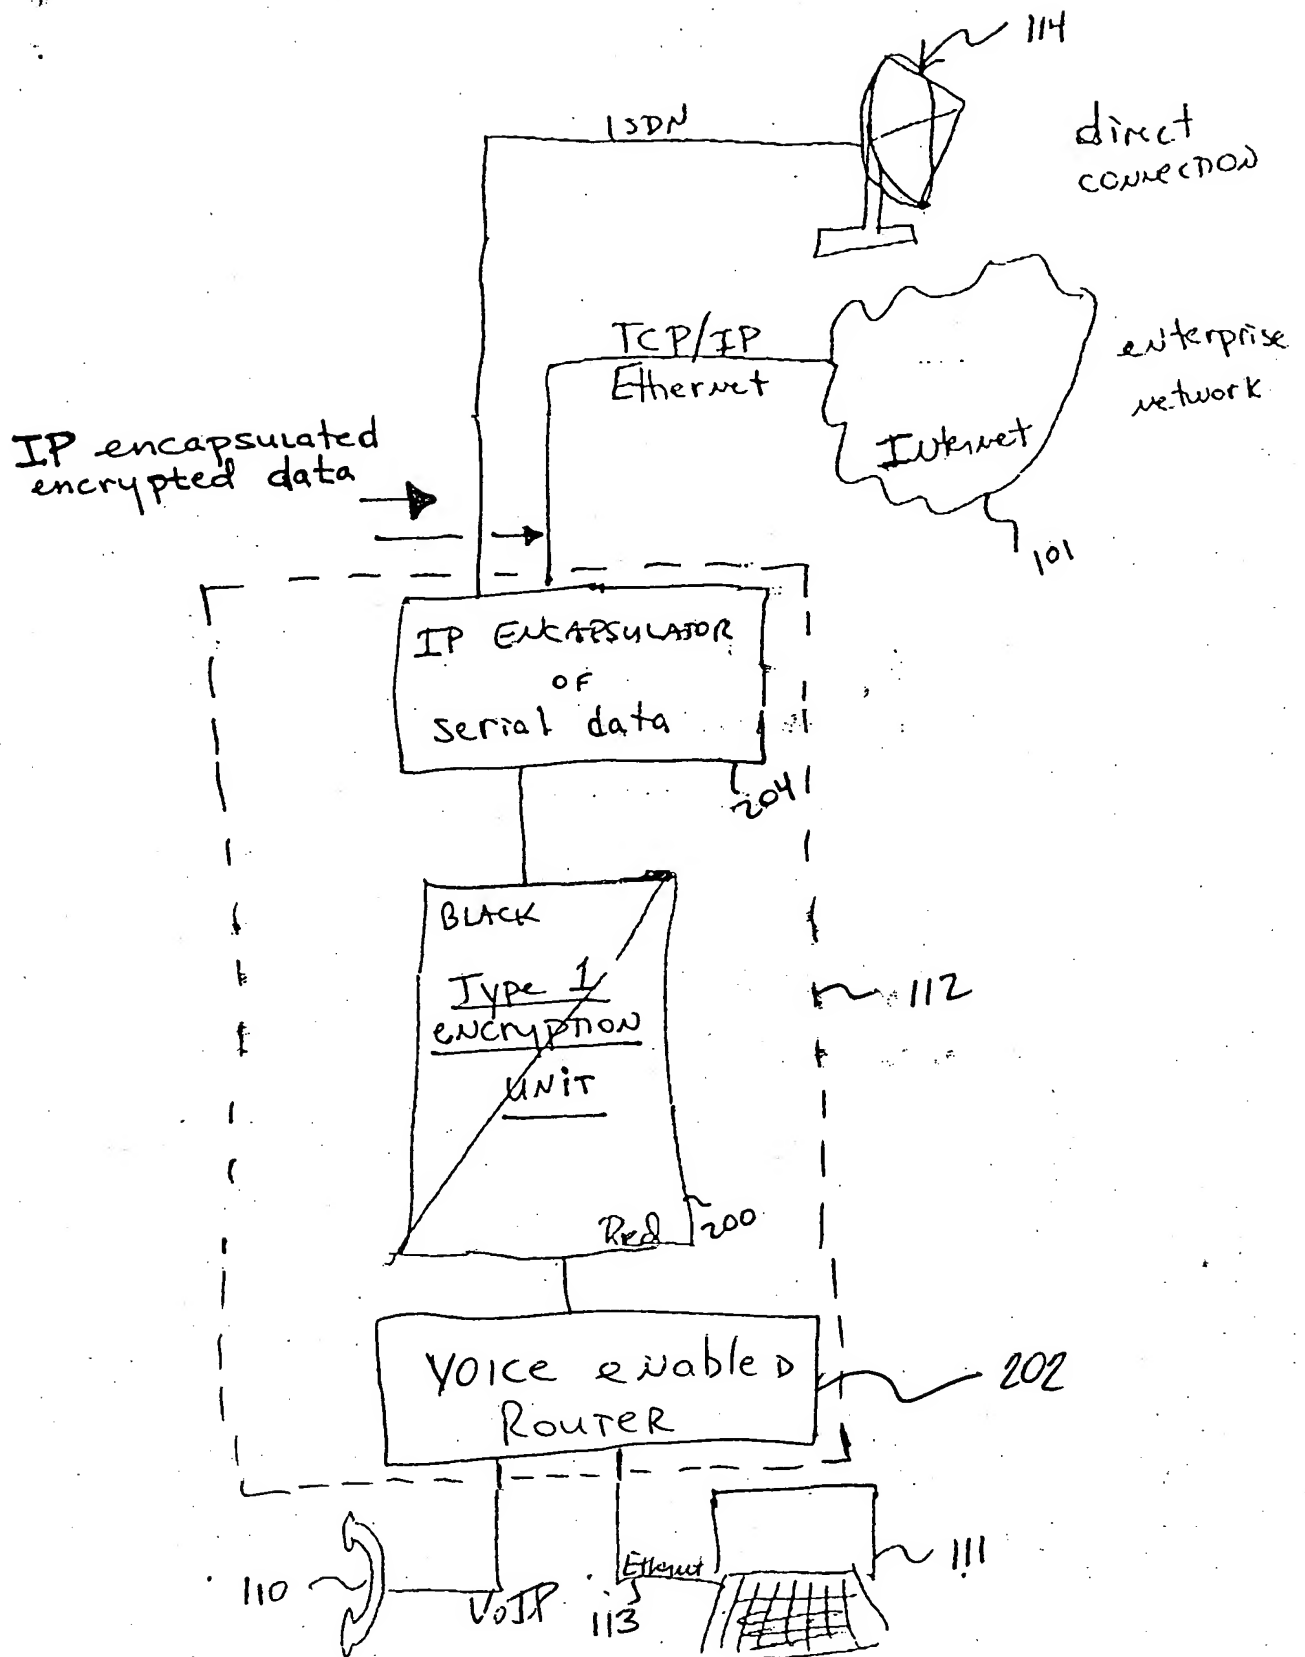 114
ISDN
direct
connection
TCP/IP
Ethernet
enterprise
network
Internet
IP encapsulated
encrypted data
101
IP ENCAPSULATOR
OF
serial data
204
BLACK
Type 1
encryption
UNIT
112
Red
200
Voice enabled
Router
202
110
VoIP
Ethernet
113
111